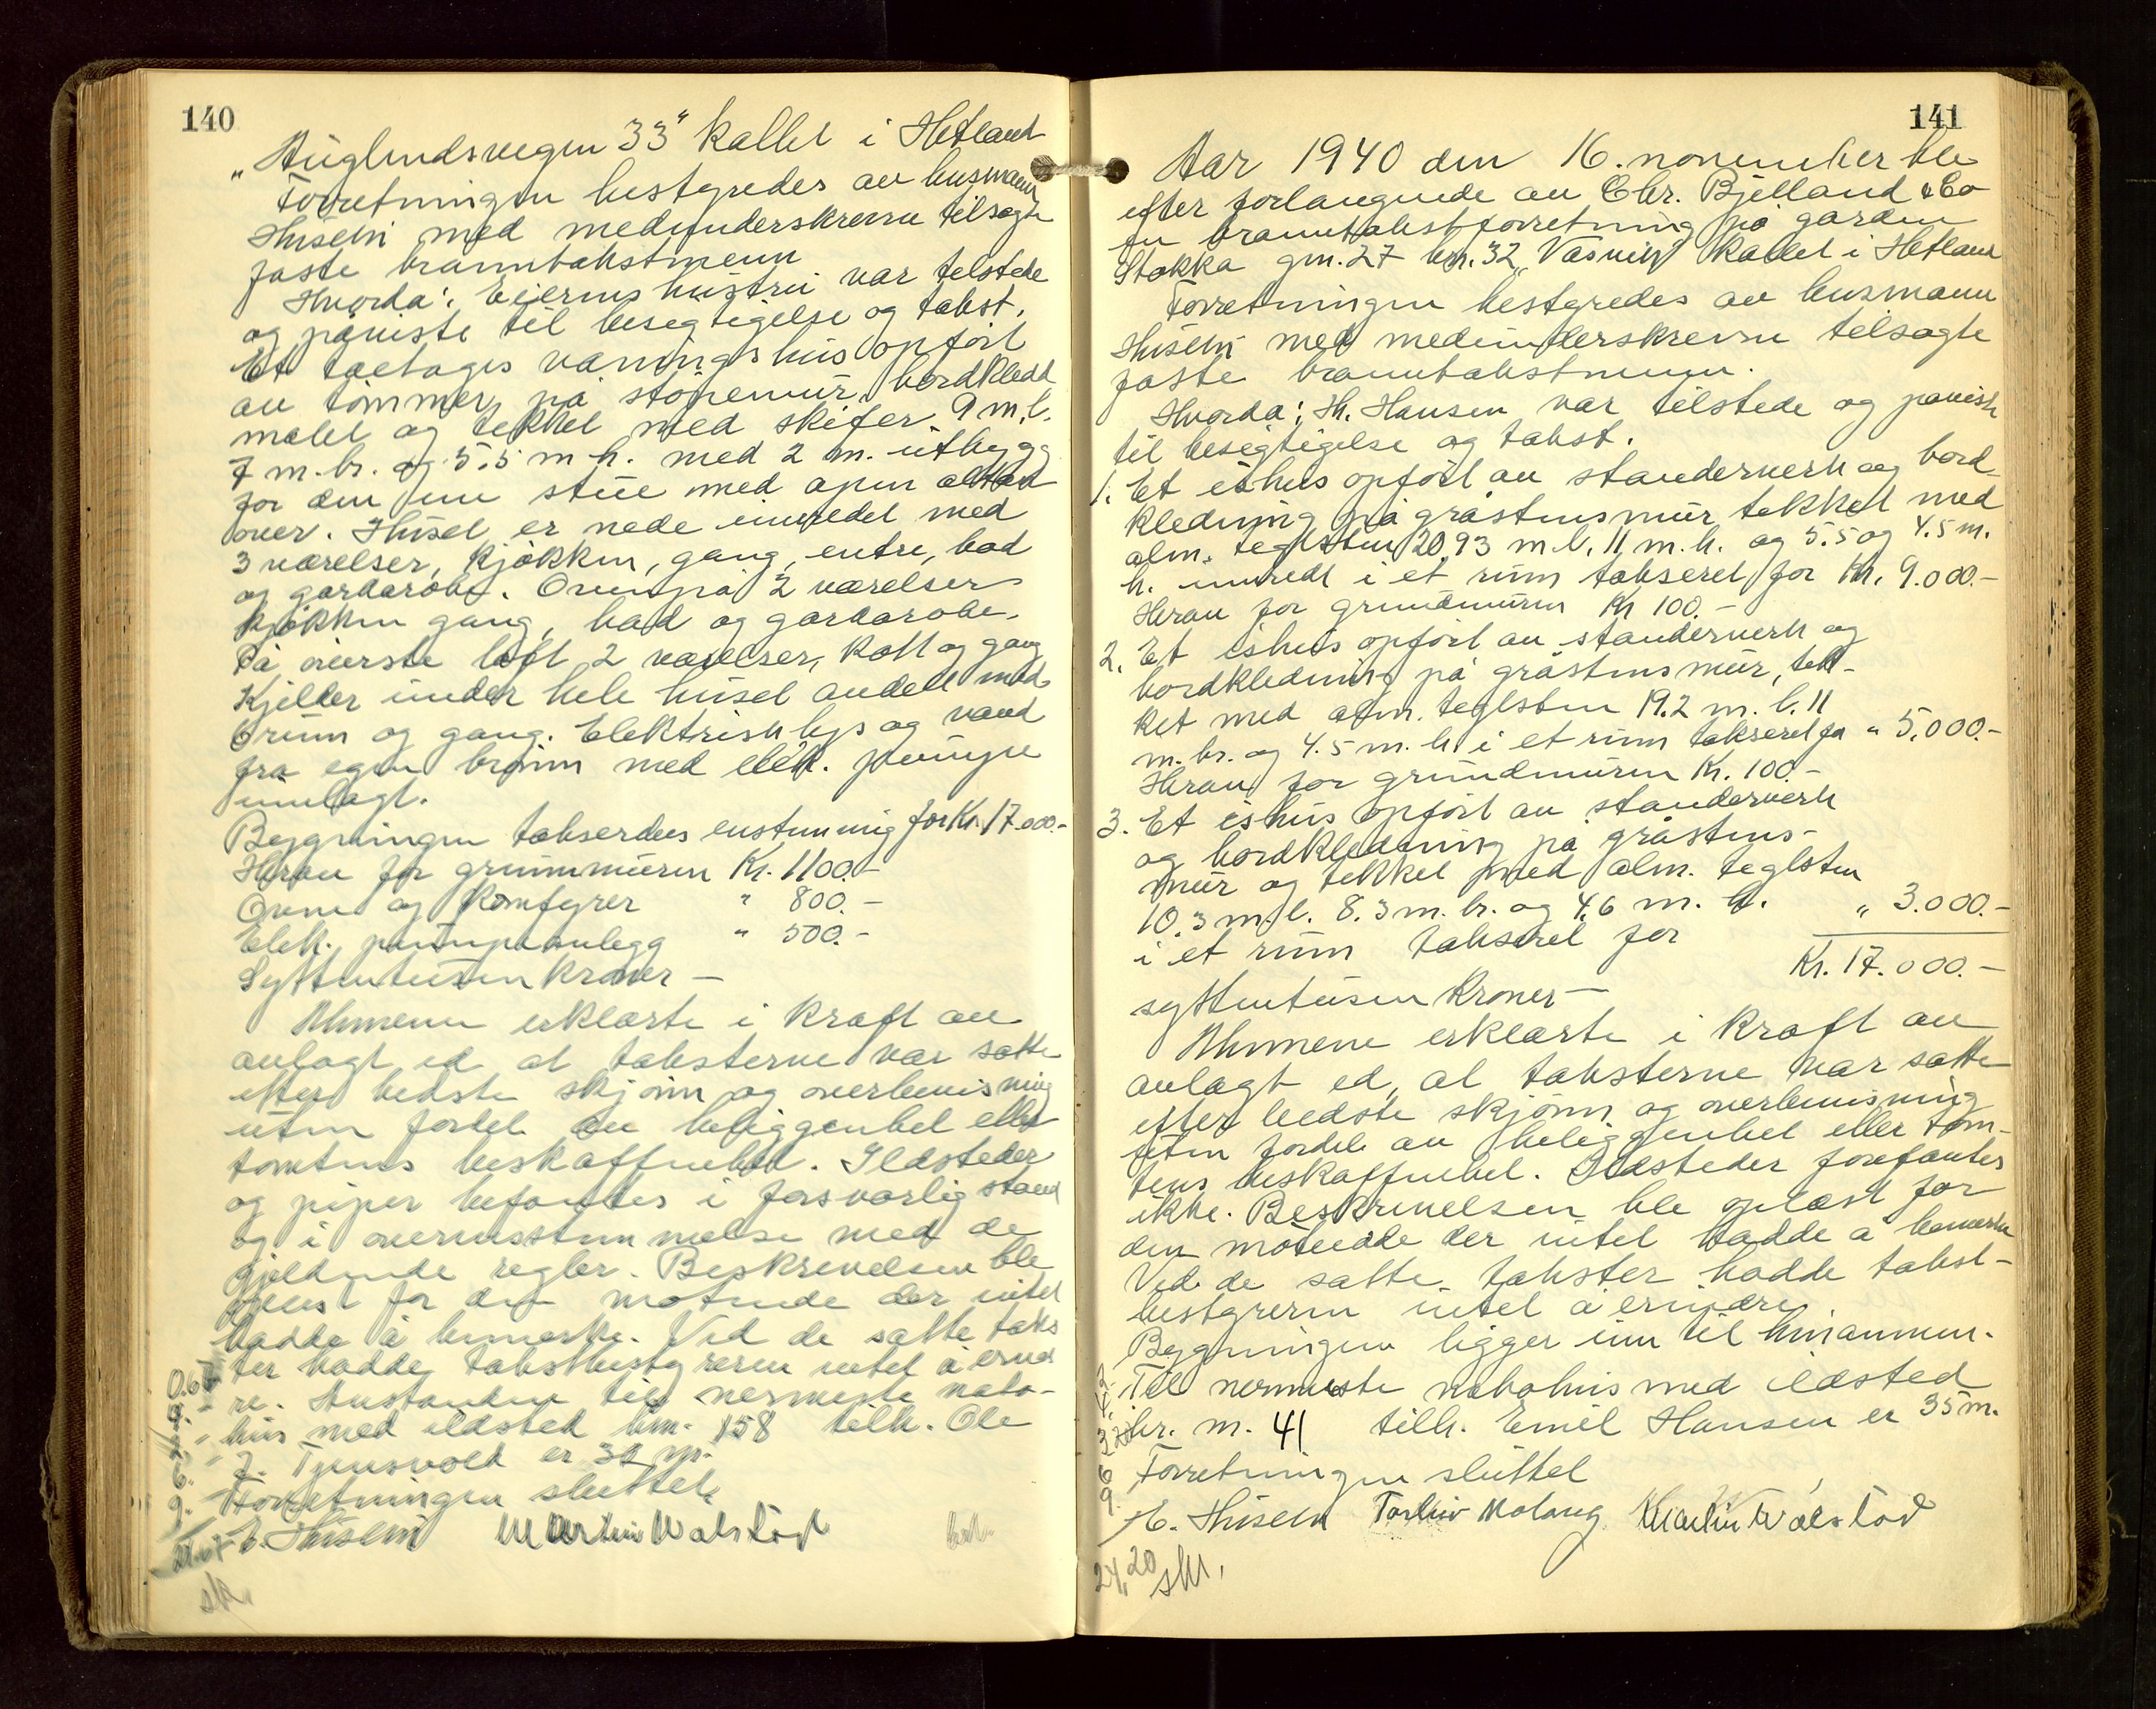 140
"Auglendsvegen 33" kallet i Hetland
Forretningen bestyredes av busmann
Husebø med medunderskrevne tilsagte
faste branntakstmenn
Hvorda: Eierens hustru var tilstede
og påviste til besegtigelse og takst.
Et toetages våningshus opført
av tømmer på støpemur, bordkledd
malet og tekket med skifer. 9 m. l.
7 m. br. og 5.5 m h. med 2 m. utbygg
for den ene stue med åpen altan
over. Huset er nede innredet med
3 værelser, kjøkken, gang, entre, bad
og gardarobe. Ovenpå 2 værelser
kjøkken gang, bad og gardarobe.
På øverste loft 2 værelser, kott og gang
Kjelder under hele huset andelt med
6 rum og gang. Elektrisk lys og vand
fra egen brønn med elek. pumpe
innlagt.
Bygningen takserdes enstemmig for Kr. 17.000.-
Herav for grunnmuren Kr. 1100.-
Ovne og komfyrer " 800.-
Elek. pumpeanlegg " 500.-
Syttentusen kroner -
Mennene erklærte i kraft av
avlagt ed at taksterne var satte
efter bedste skjønn og overbevisning
uten fordel av beliggenhet eller
tomtens beskaffenhet. Ildsteder
og piper befantes i forsvarlig stand
og i overensstemmelse med de
gjeldende regler. Beskrivelsen ble
oplest for den møtende der intet
hadde å bemerke. Ved de satte taks
ter hadde takstbestyreren intet å erind
re. Avstanden til nermeste nabo-
hus med ildsted bnr. 158 tilh. Ole
J. Tjensvold er 32 m.
Forretningen sluttet.
E. Husebø Martin Walstad
sk.
141
Aar 1940 den 16. november ble
efter forlangende av Chr. Bjelland & Co
en branntakstforretning på garden
Stokka gnr. 27 bnr. 32 "Vasvik" kallet i Hetland
Forretningen bestyredes av busmann
Husebø med medunderskrevne tilsagte
faste branntakstmenn.
Hvorda: H. Hansen var tilstede og påviste
til besegtigelse og takst.
1. Et ishus opført av standerverk og bord
kledning på gråstensmur tekket med
alm. teglsten 20.93 m l. 11 m. b. og 5.5 og 4.5 m.
h. innredt i et rum takseret for Kr. 9.000.-
Herav for grundmuren Kr 100.-
2. Et ishus opført av standerverk og
bordkledning på gråstensmur, tek-
ket med alm. teglsten 19.2 m. l. 11
m. br. og 4.5 m. h i et rum takseret for " 5.000.-
Herav for grundmuren Kr. 100.-
3. Et ishus opført av standerverk
og bordkledning på gråstens-
mur og tekket med alm. teglsten
10.3 m. l. 8.3 m. br. og 4.6 m. h.
i et rum takseret for " 3.000.-
Kr. 17.000.-
syttentusen kroner -
Mennene erklærte i kraft av
avlagt ed, at taksterne var satte
efter bedste skjønn og overbevisning
uten fordel av beliggenhet eller tom-
tens beskaffenhet. Ildsteder forefantes
ikke. Beskrivelsen ble oplæst for
den møtende der intet hadde å bemerke
Ved de satte takster hadde takst-
bestyreren intet å erindre.
Bygningene ligger inn til hinannen.
Til nermeste nabohus med ildsted
br. nr. 41 tilh. Emil Hansen er 35 m.
Forretningen sluttet
E. Husebø Torleiv Molaug Martin Walstad
24,20 sk.